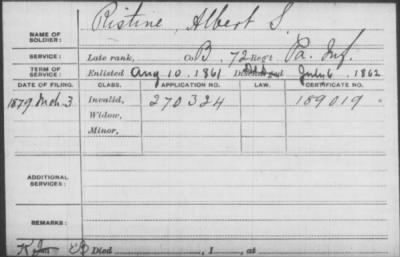 Ristine, Albert S.
NAME OF SOLDIER:
SERVICE: Late rank, Co. B, 72 Regt. Pa. Inf.
TERM OF SERVICE Enlisted Aug 10, 1861 Discharged July 6, 1862
DATE OF FILING. CLASS. APPLICATION NO. LAW. CERTIFICATE NO.
1879 Mch 3 Invalid, 270324 189019
Widow,
Minor,
ADDITIONAL SERVICES:
REMARKS:
Died, 1, at